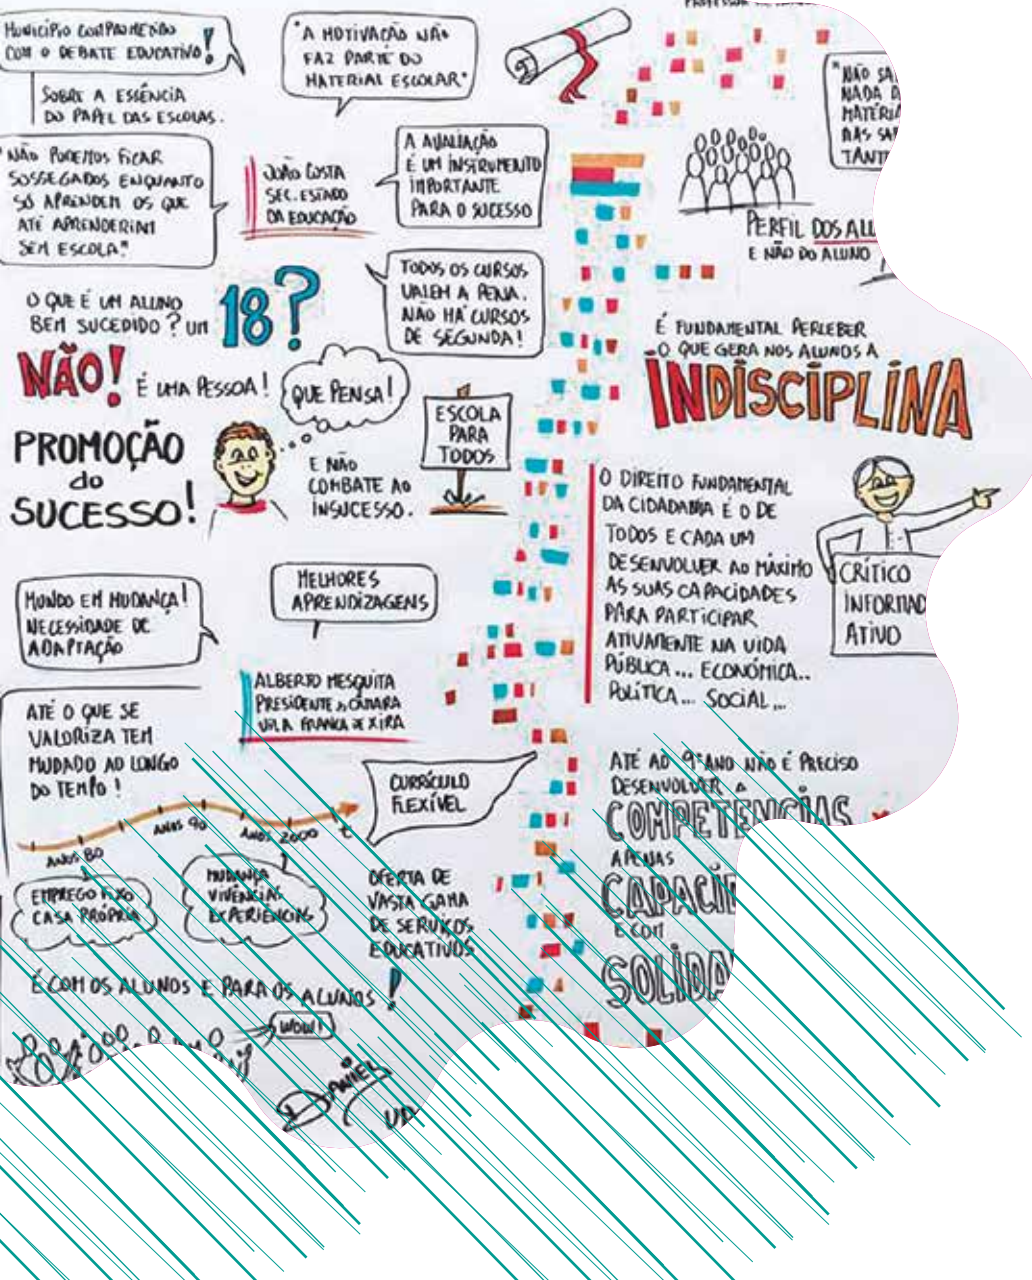 MUNICÍPIO COMPROMETIDO
COM O DEBATE EDUCATIVO!
SOBRE A ESSÊNCIA
DO PAPEL DAS ESCOLAS.
"NÃO PODEMOS FICAR
SOSSEGADOS ENQUANTO
SÓ APRENDEM OS QUE
ATÉ APRENDERIAM
SEM ESCOLA."
"A MOTIVAÇÃO NÃO
FAZ PARTE DO
MATERIAL ESCOLAR"
JOÃO COSTA
SEC. ESTADO
DA EDUCAÇÃO
A AVALIAÇÃO
É UM INSTRUMENTO
IMPORTANTE
PARA O SUCESSO
TODOS OS CURSOS
VALEM A PENA.
NÃO HÁ CURSOS
DE SEGUNDA!
O QUE É UM ALUNO
BEM SUCEDIDO? UM 18?
NÃO! É UMA PESSOA!
QUE PENSA!
PROMOÇÃO
do
SUCESSO!
E NÃO
COMBATE AO
INSUCESSO.
ESCOLA
PARA
TODOS
MUNDO EM MUDANÇA!
NECESSIDADE DE
ADAPTAÇÃO
MELHORES
APRENDIZAGENS
ALBERTO MESQUITA
PRESIDENTE da CÂMARA
VILA FRANCA DE XIRA
ATÉ O QUE SE
VALORIZA TEM
MUDADO AO LONGO
DO TEMPO!
ANOS 80
ANOS 90
ANOS 2000
t
EMPREGO FIXO
CASA PRÓPRIA
MUDANÇA
VIVÊNCIAS
EXPERIÊNCIAS
CURRÍCULO
FLEXÍVEL
OFERTA DE
VASTA GAMA
DE SERVIÇOS
EDUCATIVOS
É COM OS ALUNOS E PARA OS ALUNOS!
WOW!
DANIEL
"NÃO SA
NADA D
MATÉRIA
MAS SA
TANT
PERFIL DOS ALU
E NÃO DO ALUNO
É FUNDAMENTAL PERCEBER
O QUE GERA NOS ALUNOS A
INDISCIPLINA
O DIREITO FUNDAMENTAL
DA CIDADANIA É O DE
TODOS E CADA UM
DESENVOLVER AO MÁXIMO
AS SUAS CAPACIDADES
PARA PARTICIPAR
ATIVAMENTE NA VIDA
PÚBLICA... ECONÓMICA..
POLÍTICA... SOCIAL...
CRÍTICO
INFORMAD
ATIVO
ATÉ AO 9º ANO NÃO É PRECISO
DESENVOLVER A
COMPETÊNCIAS
APENAS
CAPACID
E COM
SOLIDA